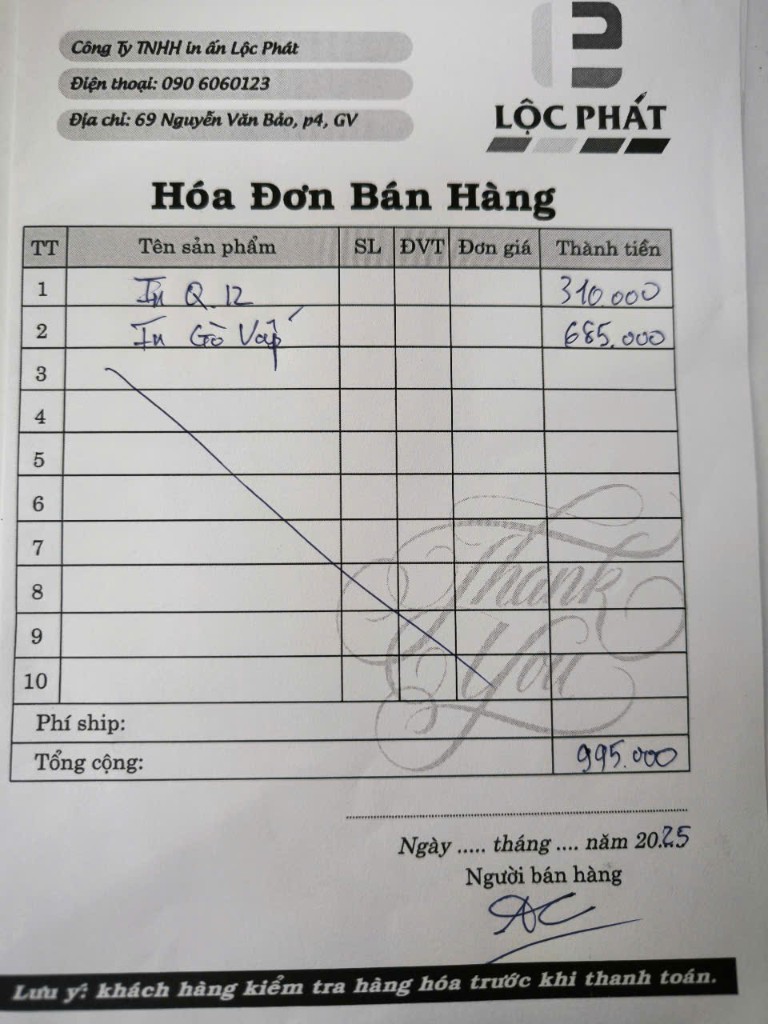 Công Ty TNHH in ấn Lộc Phát
Điện thoại: 090 6060123
Địa chỉ: 69 Nguyễn Văn Bảo, p4, GV
LỘC PHÁT
Hóa Đơn Bán Hàng
TT Tên sản phẩm SL ĐVT Đơn giá Thành tiền
1 In Q.12 310.000
2 In Gò Vấp 685.000
3
4
5
6
7
8
9
10
Thank You
Phí ship:
Tổng cộng: 995.000
Ngày ..... tháng .... năm 20.25
Người bán hàng
Lưu ý: khách hàng kiểm tra hàng hóa trước khi thanh toán.